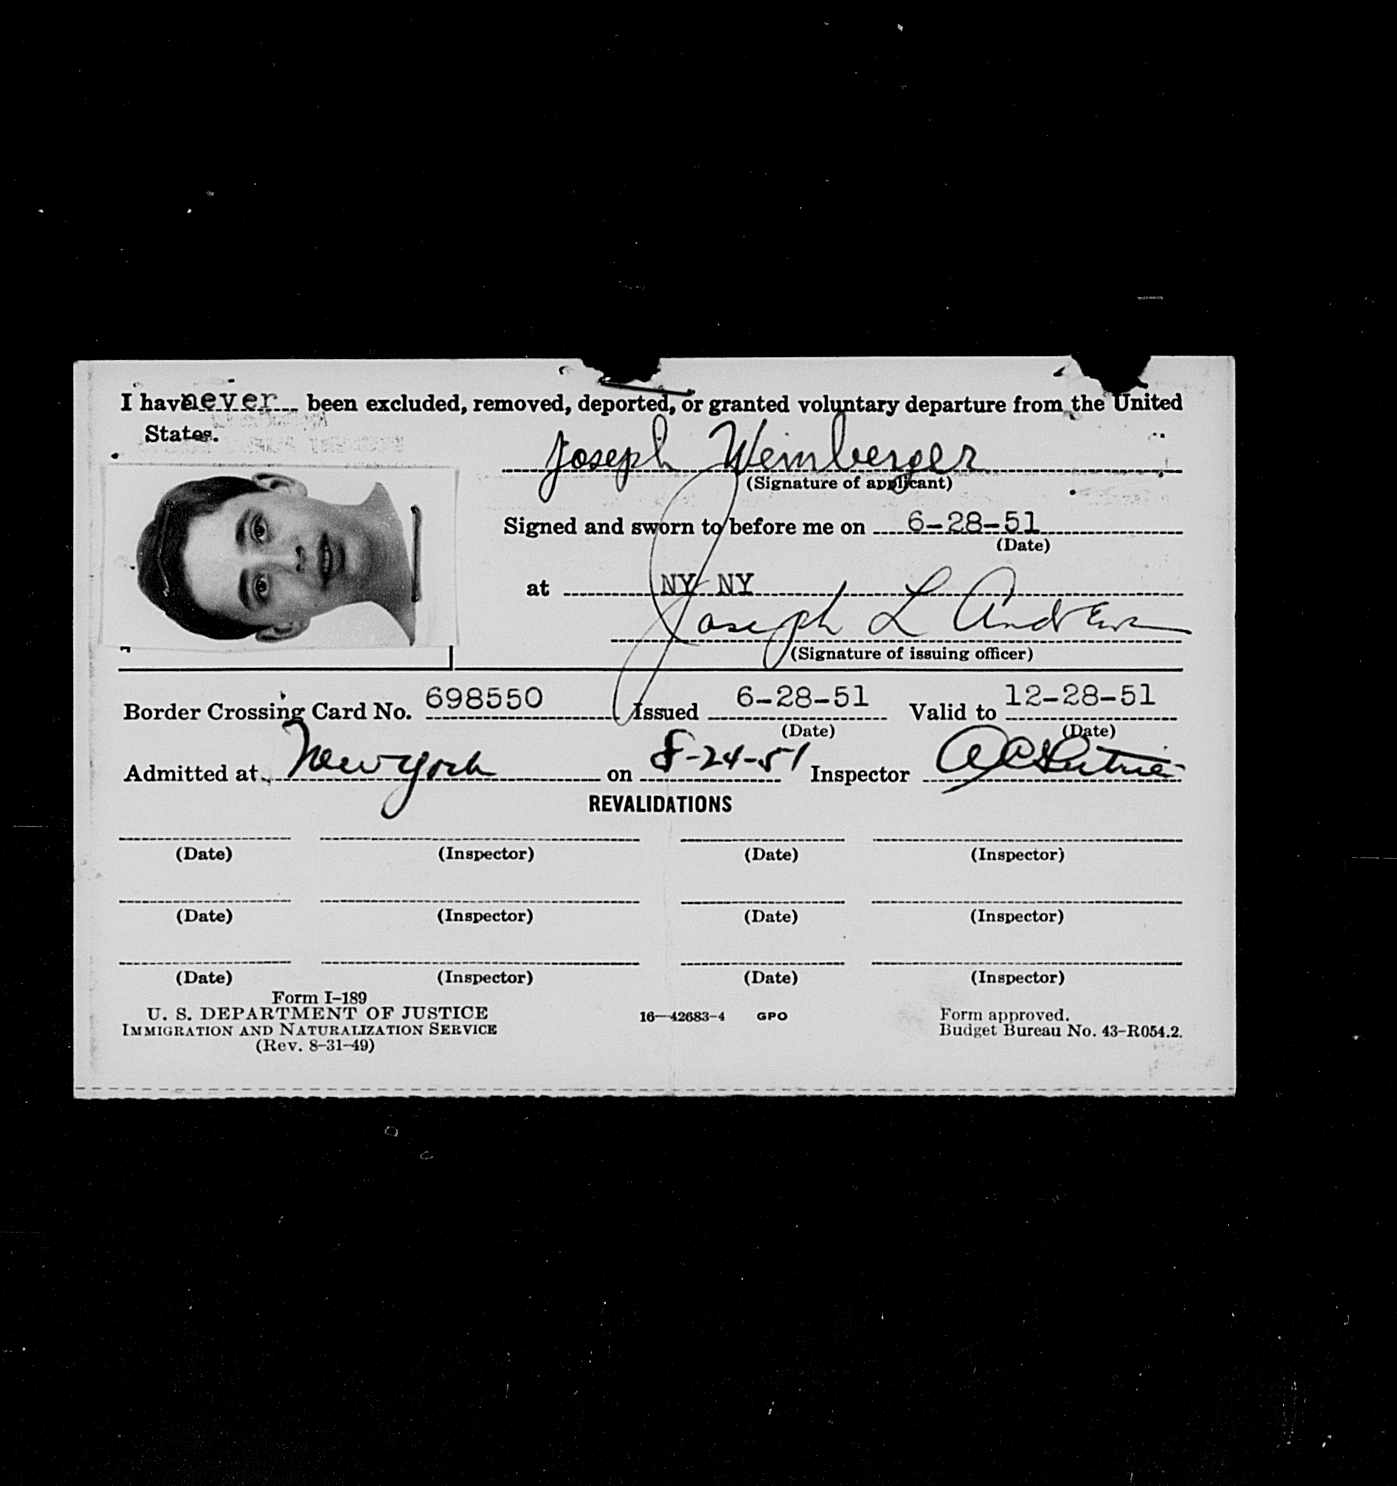 I have never been excluded, removed, deported, or granted voluntary departure from the United
States.
Joseph Weinberger
(Signature of applicant)
Signed and sworn to before me on 6-28-51
(Date)
at NY NY
Joseph L Andrews
(Signature of issuing officer)
Border Crossing Card No. 698550 Issued 6-28-51 Valid to 12-28-51
(Date) (Date)
Admitted at New York on 8-24-51 Inspector
REVALIDATIONS
(Date) (Inspector) (Date) (Inspector)
(Date) (Inspector) (Date) (Inspector)
(Date) (Inspector) (Date) (Inspector)
Form I-189
U. S. DEPARTMENT OF JUSTICE
IMMIGRATION AND NATURALIZATION SERVICE
(Rev. 8-31-49)
16—42683-4 GPO
Form approved.
Budget Bureau No. 43-R054.2.